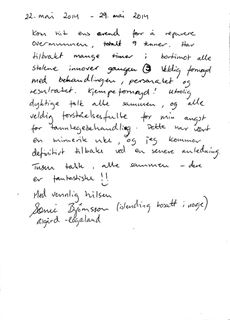 22. mai 2014 - 29. mai 2014
Kom hit ens ærend for å reparere
overmunnen, totalt 9 tenner. Har
tilbrakt mange timer i
stolene gangen Veldig fornøyd
med behandlingen, personalet og
resultatet. Kjempefornøyd! Utrolig
dyktige folk alle sammen, og alle
veldig forståelsesfulle for min angst
for tannlegebehandling. Dette har vært
en minnerik uke, og jeg kommer
definitivt tilbake ved en senere anledning.
Tusen takk, alle sammen - dere
er fantastiske!!
Med vennlig hilsen
Björnsson (islending bosatt i norge)